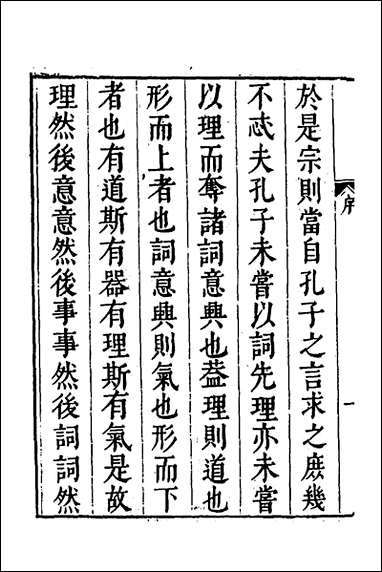 序
一
於是宗則當自孔子之言求之庶幾
不忒夫孔子未嘗以詞先理亦未嘗
以理而奪諸詞意興也葢理則道也
形而上者也詞意興則氣也形而下
者也有道斯有器有理斯有氣是故
理然後意意然後事事然後詞詞然